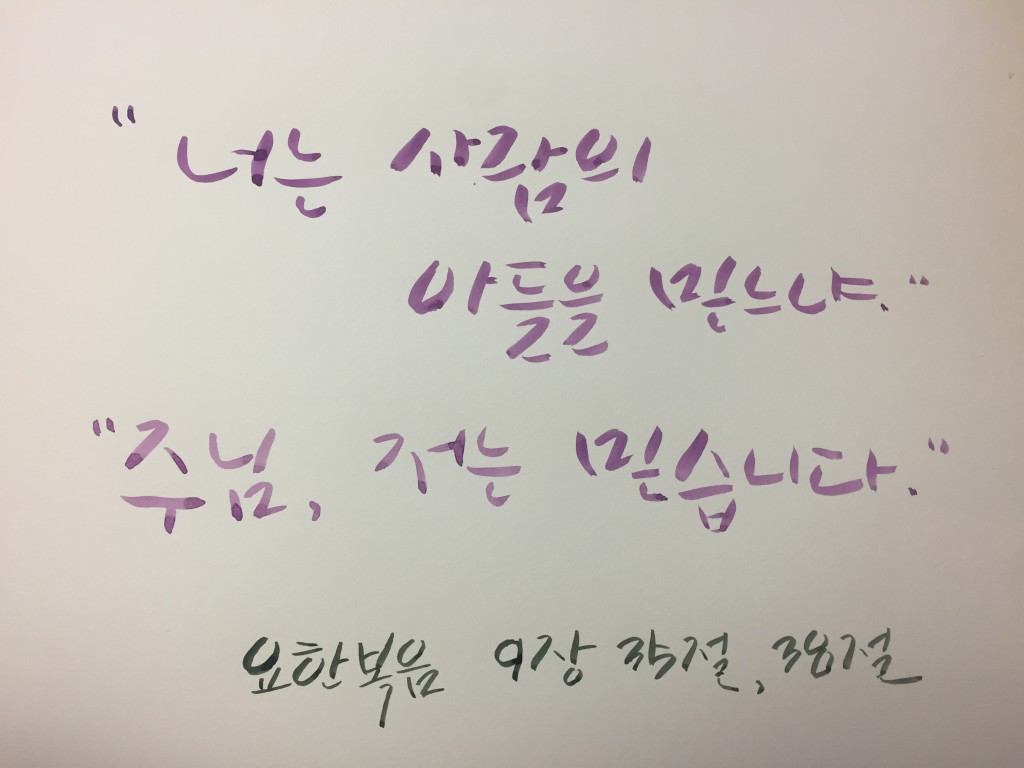 "너는 사람의
아들을 믿느냐."
"주님, 저는 믿습니다."
요한복음 9장 35절, 38절